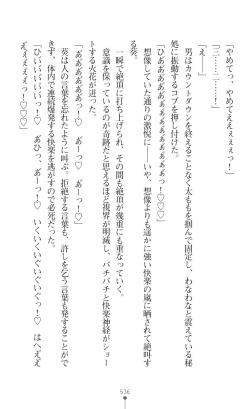 「やめてっ、やめてええぇぇぇっ！」
「三……二……！」
「え――」
　男はカウントダウンを終えることなく太ももを掴んで固定し、わなわなと震えている秘
処に振動するコブを押し付けた。
「ひああああああああああああぁぁぁぁぁぁっ！♡♡♡」
　想像していた通りの激悦に――いや、想像よりも遥かに強い快楽の嵐に晒されて絶叫す
る葵。
　一瞬で絶頂に打ち上げられ、その間も絶頂が幾重にも重なっていく。
　意識を保っているのが奇跡だと思えるほど視界が明滅し、バチバチと快楽神経がショー
トする火花が迸った。
「あああああああっっ！♡　あーっ！♡　あーっ！♡」
　葵は人の言葉を忘れたように叫ぶ。拒絶する言葉も、許しを乞う言葉も発することがで
きず、体内で連続爆発する快楽を逃がすので必死だった。
「ひいぃぃぃぃいっ！♡　あひっ、あーっ！♡　いくいくいぐいぐっ！♡　はへぇぇ
ぇぇぇぇぇっ！♡♡♡」
536